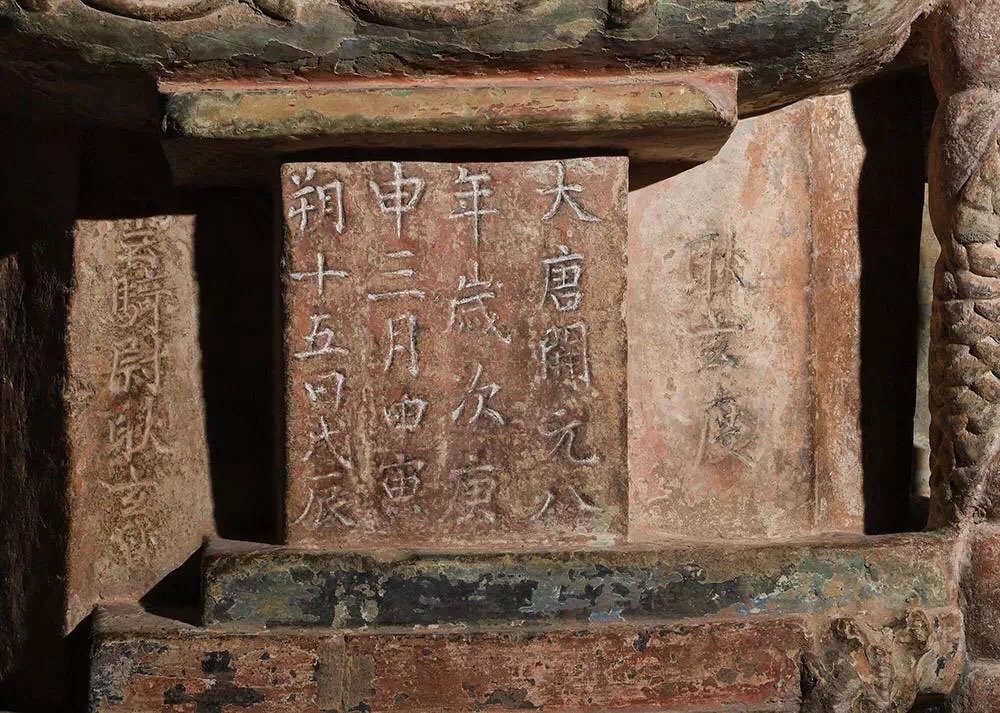 耿玄度
大唐開元八
年歲次庚
申三月甲寅
朔十五日戊辰
雲騎尉耿玄